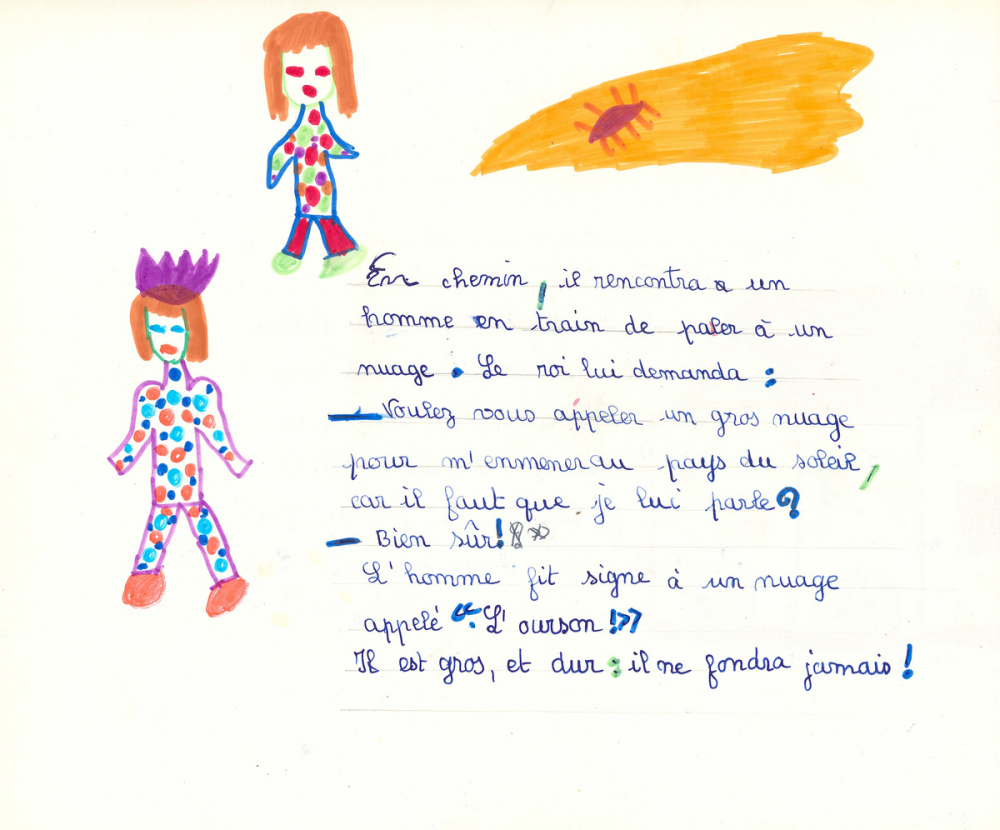 En chemin, il rencontra un
homme en train de paler à un
nuage. Le roi lui demanda :
— Voulez vous appeler un gros nuage
pour m'enmener au pays du soleil,
car il faut que je lui parle ?
— Bien sûr !
L'homme fit signe à un nuage
appelé " L'ourson !"
Il est gros, et dur : il ne fondra jamais !